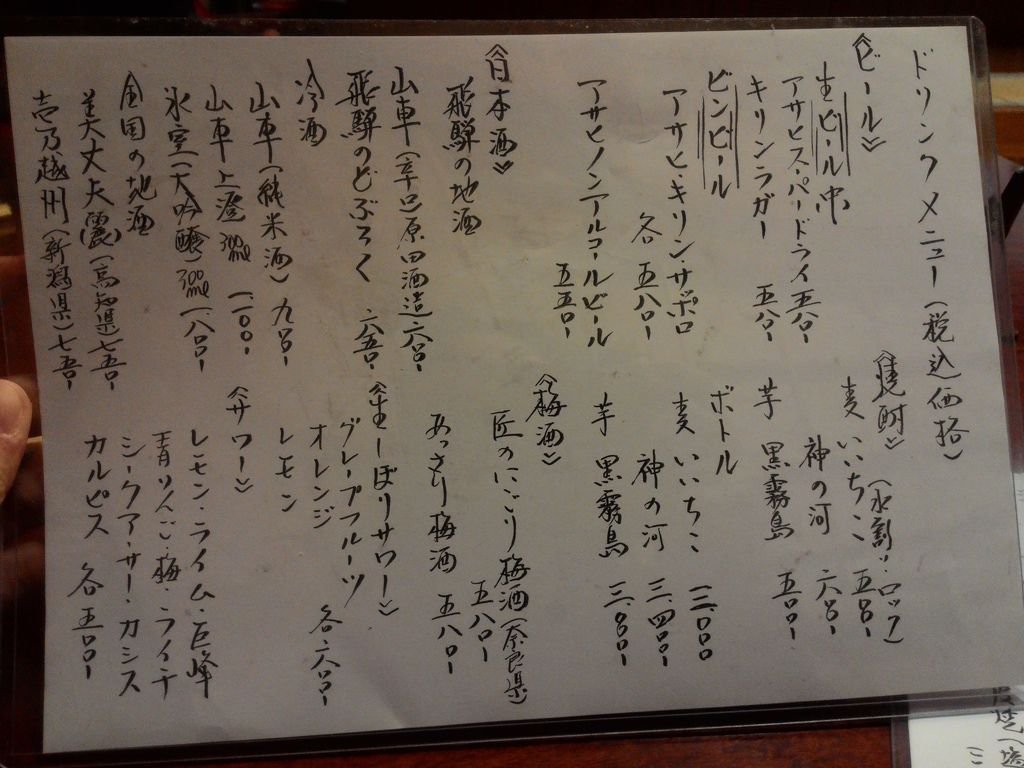 ドリンクメニュー(税込価格)
《ビール》
生ビール 中
アサヒスーパードライ 五八〇-
キリンラガー 五八〇-
ビンビール
アサヒ・キリン・サッポロ
各 五八〇-
アサヒノンアルコールビール
五五〇-
《日本酒》
飛騨の地酒
山車(辛口)原田酒造 六〇〇-
飛騨のどぶろく 六五〇-
冷酒
山車(純米酒) 九〇〇-
山車 上澄 300ml 一、一〇〇-
氷室(大吟醸) 300ml 一、八〇〇-
全国の地酒
美丈夫(麗)(高知県) 七五〇-
壱乃越州(新潟県) 七五〇-
《焼酎》(水割・ロック)
麦 いいちこ 五〇〇-
神の河 六〇〇-
芋 黒霧島 五〇〇-
ボトル
麦 いいちこ 三、〇〇〇
神の河 三、四〇〇-
芋 黒霧島 三、〇〇〇-
《梅酒》
匠のにごり梅酒(奈良県)
五八〇-
あっさり梅酒 五八〇-
《生しぼりサワー》
グレープフルーツ
オレンジ 各六〇〇-
レモン
《サワー》
レモン・ライム・巨峰
青りんご・梅・ライチ
シークアーサー・カシス
カルピス 各 五〇〇-